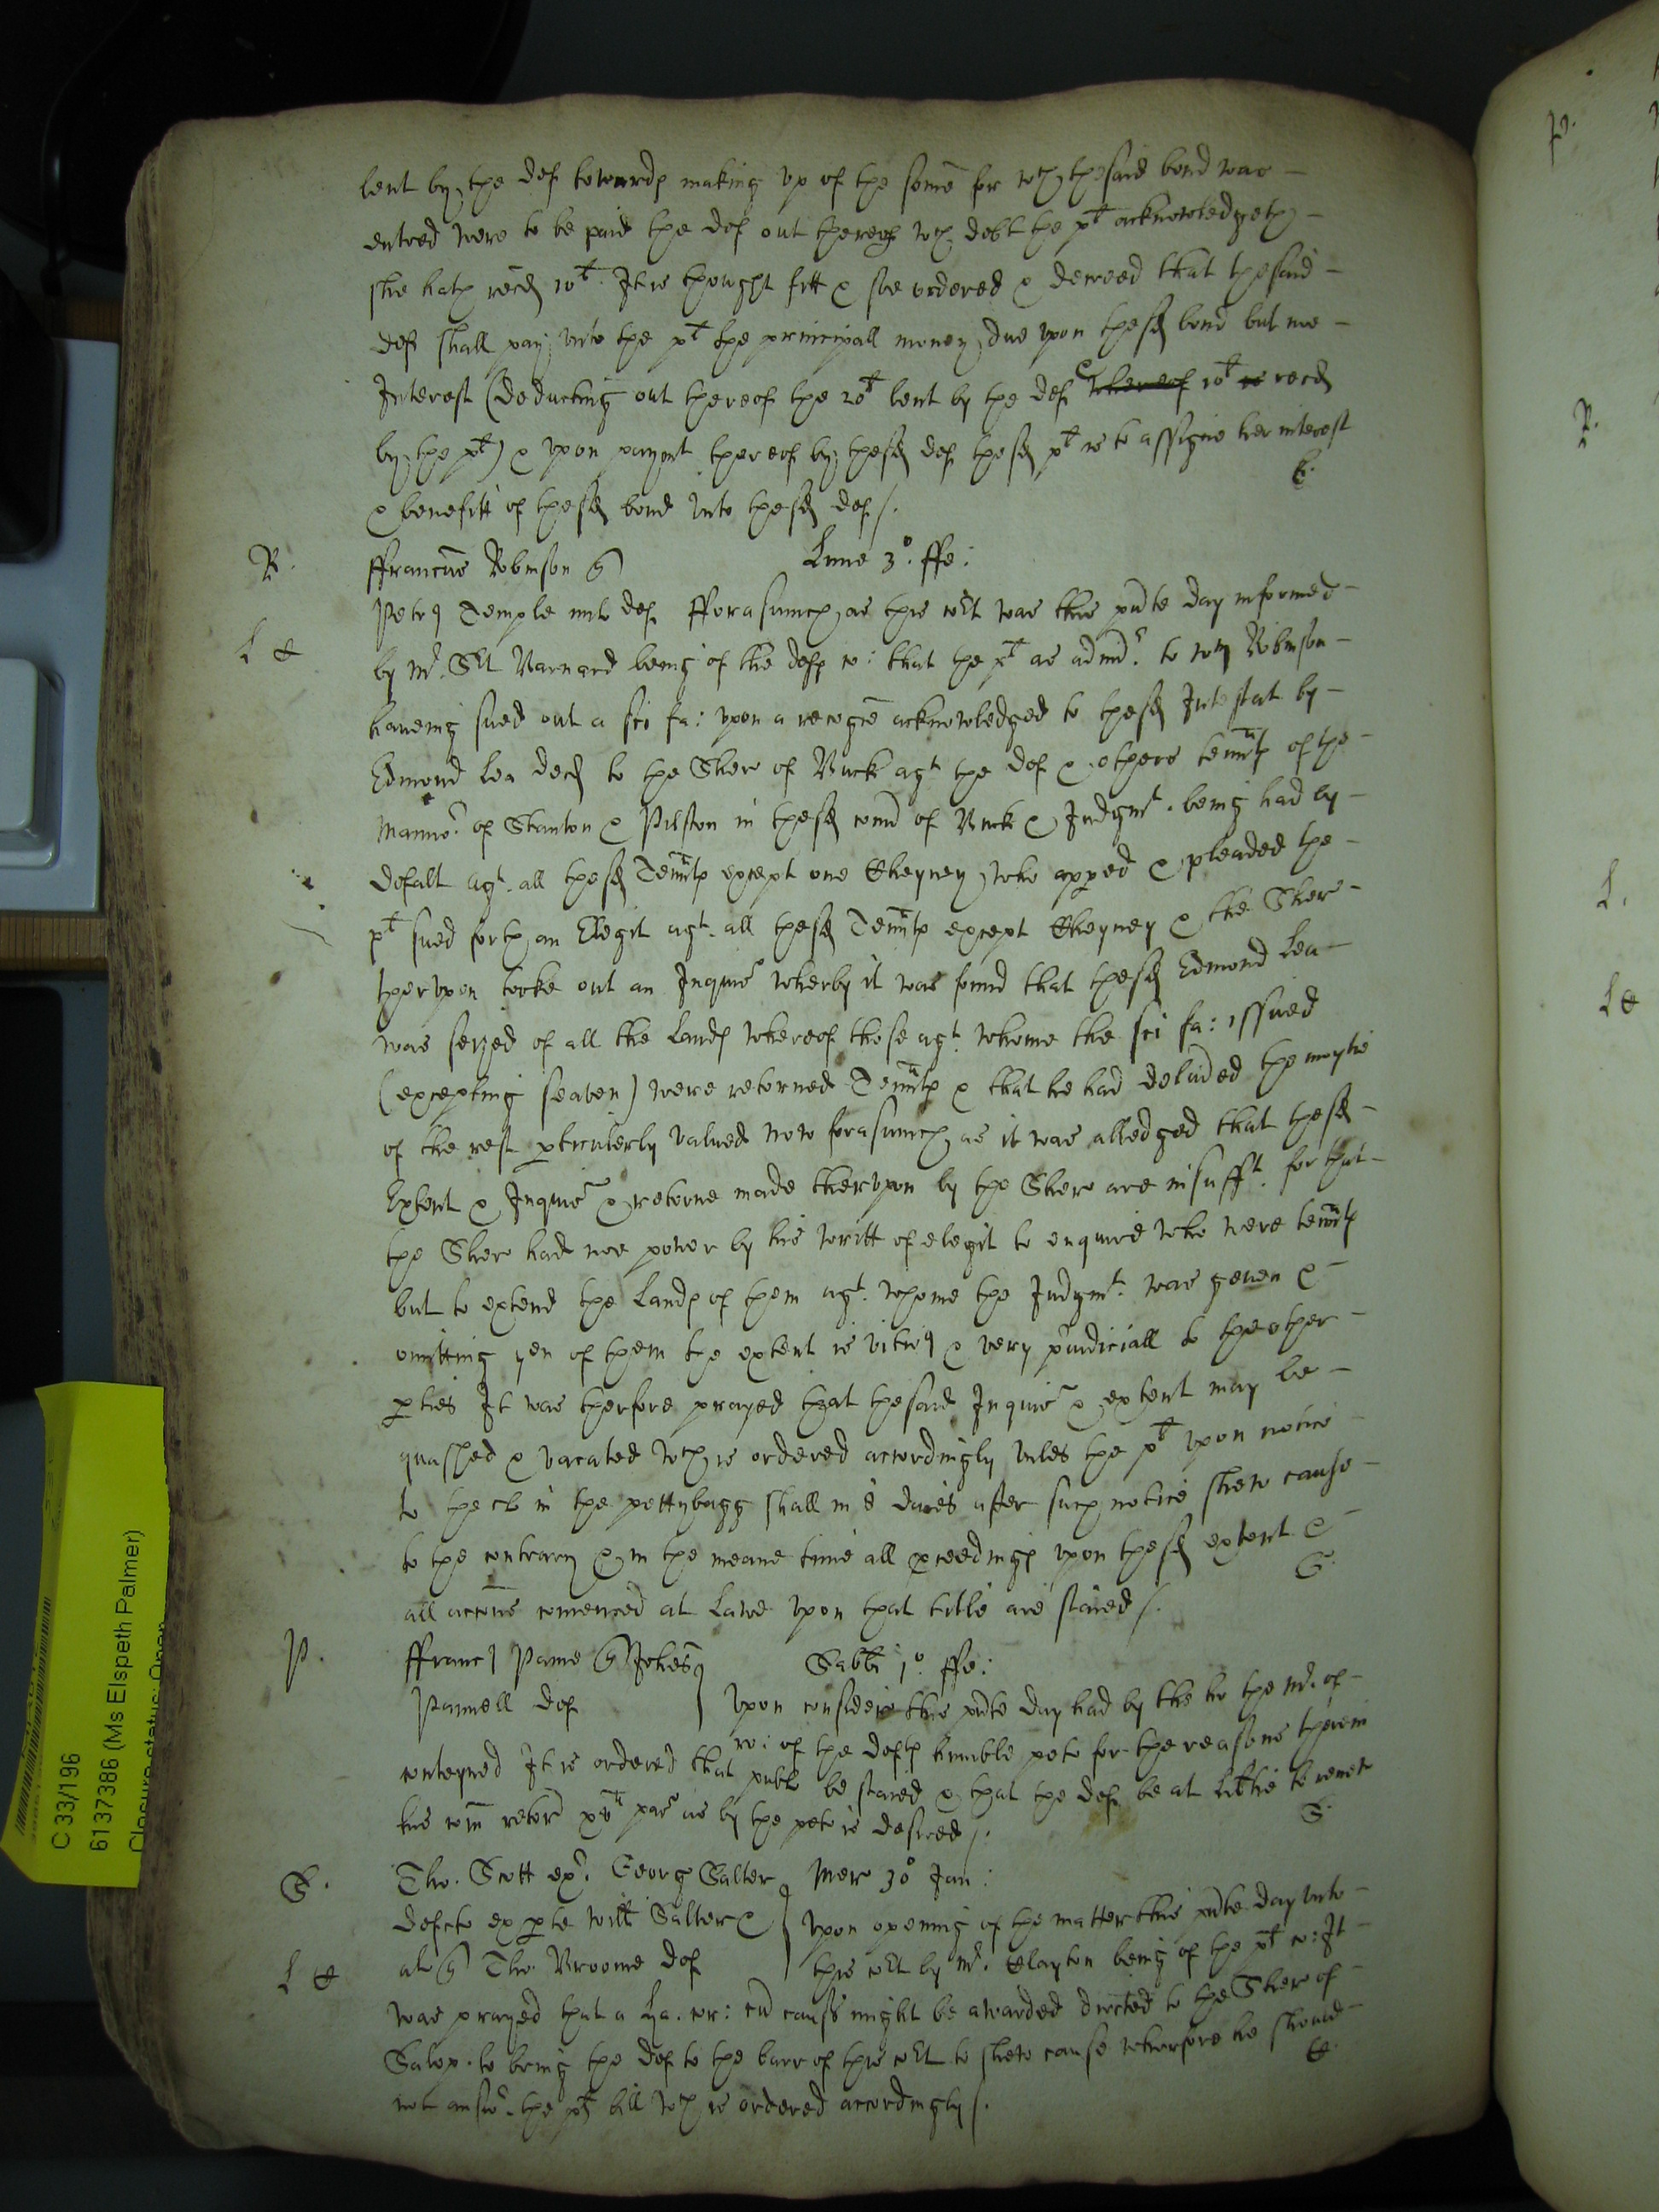 lent by the def towards making vp of the some for wch the said bond was
entred were to be paid the def out thereof wch debt the plt acknowledgeth
she hath recd 10l It is thought fitt & soe ordered & decreed that the said
def shall pay vnto the plt the principall money due vpon the sd bond but noe
Interest (deducting out thereof the 20l lent by the def & 10l recd
by the plt) & vpon paymt thereof by the sd def the sd plt is to assigne her interest
& benefitt of the sd bond vnto the sd def /.
R.
ffranciscus Robinson q
Lune 3o. ffe:
Petrū Temple milt def fforasmuch as this cort was this pnte day informed
L &
by Mr. Srt Barnard being of the defts co: that the plt as admr. to Wm Robinson
haueing sued out a sci fa: vpon a recogce acknowledged to the sd Intestat by
Edmond Lea decd to the Shere of Buck agt the def & others tennts of the
manno.r of Stanton & Pilston in the sd com of Buck & Judgmt. being had by
defalt agt. all the sd Tennts except one Cheyney who appeed & pleaded the
plt sued forth an Elegit agt. all the sd Tennts except Cheyney & the Shere
thervpon tooke out an Inquis wherby it was found that the sd Edmond Lea
was seized of all the Lands whereof those agt. whome the sci fa: issued
(excepting seaven) were retorned Tennts & that he had deliu̅ed the moytie
of the rest pticulerly valued now forasmuch as it was alledged that the sd
Extent & Inquis & retorne made thervpon by the Shere are insufft. for that
the Shere had noe power by his writt of elegit to enquire who were tennts
but to extend the Lands of them agt. whome the Judgmt. was geuen &
omitting yen of them the extent is vitious & very pruidiciall to the other
pties It was therfore prayed that the said Inquis & extent may be
quashed & vacated wch is ordered accordingly vnles the plt vpon notice
to the cl in the pettybagg shall in 8 daies after such notice shew cause
to the contrary & in the meane time all pceedings vpon the sd extent &
all accons comenced at Lawe vpon that title are staied /.
P.
ffranc Paine q Johes
Sabbi 1o. ffe:
Pannell def
Vpon consideracon this pnte day had by the ho the Mr. of
ro: of the defts humble peto for the reasons therein
conteyned It is ordered that publi be staied & that the def be at libtie to renew
his com retorn as by the peto is desired /.
S.
Tho. Scott exr. Georg Salter
Mer 30o Jan:
defcto ex pte Willi Salter &
Vpon opening of the matter this pnte day vnto
L &
al q Tho. Broome def
this cort by Mr. Clayton being of the plt co: It
was prayed that a Ha. cor: cu causa might be awarded directed to the Shere of
Salop. to bring the def to the barr of this cort to shew cause wherfore he should
not answr. the plts bill wch is ordered accordingly /.
C 33/196
6137386 (Ms Elspeth Palmer)
Closure status: Open